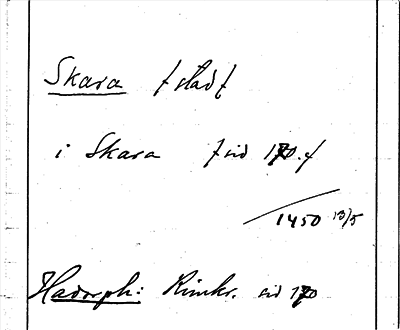 Skara [stad]
i Skara [sid 170.]
1450 13/5
Hadorph: Rimkr. sid 170